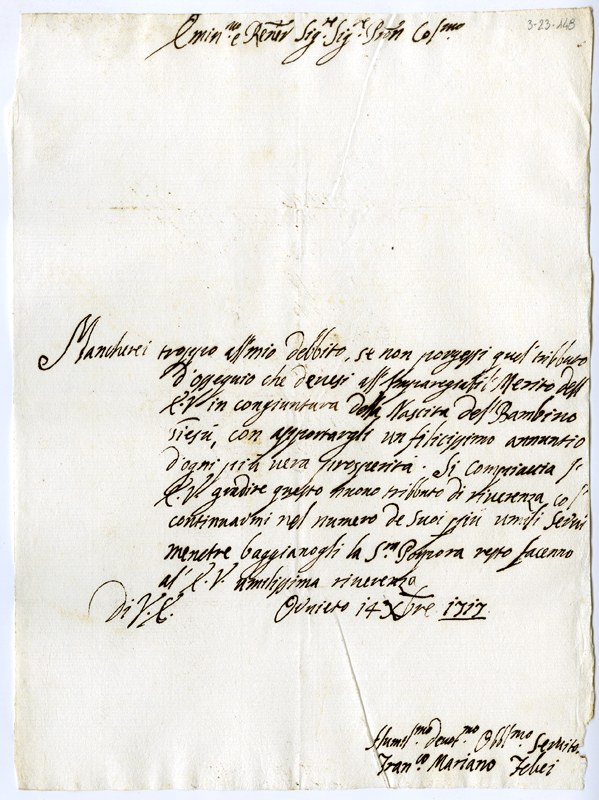 3-23-148
Emin.mo e Ren.r Sig.re Sig.re Pron Col.mo
Mancherei troppo all mio debbito, se non porgessi quel tributo
d'ogequio che devesi all' Impareggiabil Merito dell
E.V. in congiuntura della Nascita del Bambino
Giesù, con apportargli un filicissimo annuntio
d'ogni più vera prosperità. Si compiaccia l'
E.V. gradire questo nuovo tributo di riverenza col
continuarmi nel numero de suoi più umili Servi
mentre baggianogli la S.ra Porpora resto facenno
al' E.V. umilissima riverenza
Di V.E. Orvieto 14 Xbre 1717
Humil.mo devot.mo Obb.mo Servito.
Fran.co Mariano Febei